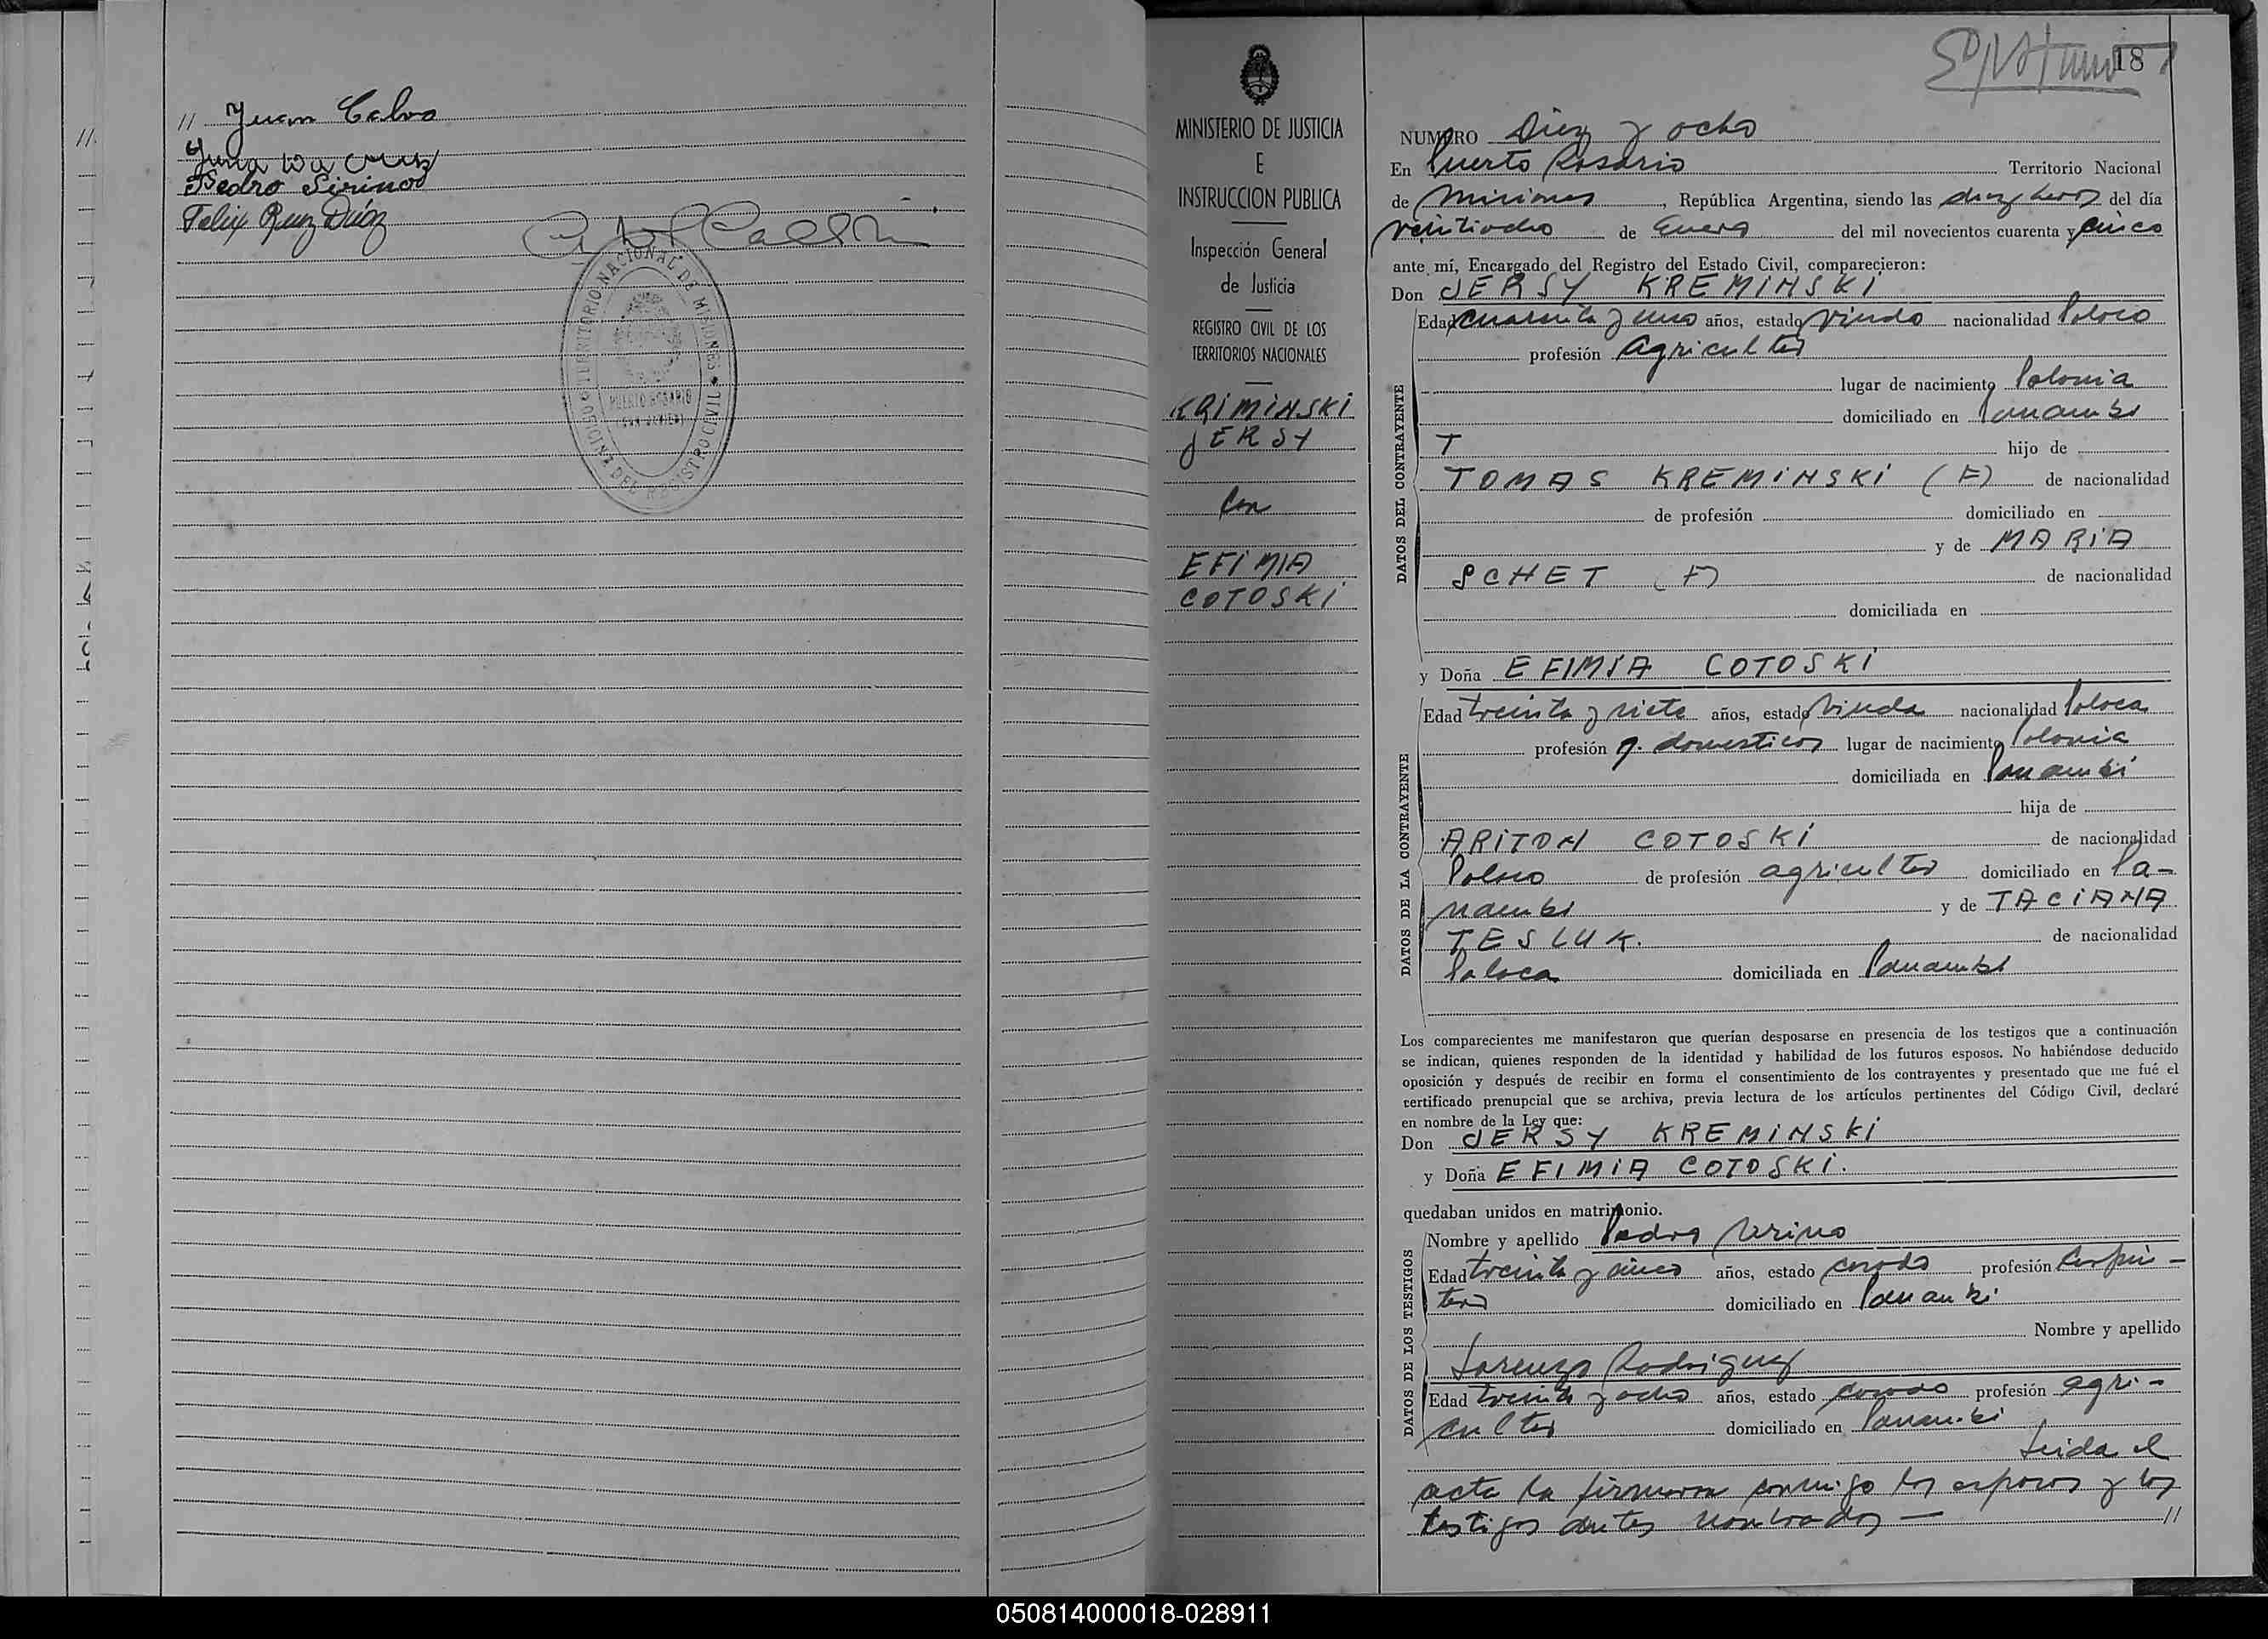 // Juan Calvo
Juna Da Cruz
Pedro Sirino
Felix Ruiz Diaz
OFICINA DEL REGISTRO CIVIL
TERRITORIO NACIONAL DE MISIONES
PUERTO ROSARIO
MINISTERIO DE JUSTICIA
E
INSTRUCCION PUBLICA
Inspección General
de Justicia
REGISTRO CIVIL DE LOS
TERRITORIOS NACIONALES
KRIMINSKI
JERSY
Con
EFIMIA
COTOSKI
18
NUMERO Diez y ocho
En Puerto Rosario Territorio Nacional
de Misiones, República Argentina, siendo las diez horas del día
veintiocho de Enero del mil novecientos cuarenta y cinco
ante mí, Encargado del Registro del Estado Civil, comparecieron:
Don JERSY KREMINSKI
DATOS DEL CONTRAYENTE
Edad cuarenta y uno años, estado viudo nacionalidad Polaco
profesión Agricultor
lugar de nacimiento Polonia
domiciliado en Panambi
T hijo de
TOMAS KREMINSKI (F) de nacionalidad
de profesión domiciliado en
y de MARIA
SCHET (F) de nacionalidad
domiciliada en
y Doña EFIMIA COTOSKI
DATOS DE LA CONTRAYENTE
Edad treinta y siete años, estado viuda nacionalidad Polaca
profesión q. domesticos lugar de nacimiento Polonia
domiciliada en Panambi
hija de
ARITON COTOSKI de nacionalidad
Polaco de profesión agricultor domiciliado en Pa-
nambi y de TACIANA
TESLUK. de nacionalidad
Polaca domiciliada en Panambi
Los comparecientes me manifestaron que querían desposarse en presencia de los testigos que a continuación
se indican, quienes responden de la identidad y habilidad de los futuros esposos. No habiéndose deducido
oposición y después de recibir en forma el consentimiento de los contrayentes y presentado que me fué el
certificado prenupcial que se archiva, previa lectura de los artículos pertinentes del Código Civil, declaré
en nombre de la Ley que:
Don JERSY KREMINSKI
y Doña EFIMIA COTOSKI.
quedaban unidos en matrimonio.
DATOS DE LOS TESTIGOS
Nombre y apellido Pedro Sirino
Edad treinta y cinco años, estado casado profesión Carpin-
tero domiciliado en Panambi
Nombre y apellido
Lorenzo Rodriguez
Edad treinta y ocho años, estado casado profesión agri-
cultor domiciliado en Panambi
Leida el
acta la firmaron conmigo los esposos y los
testigos antes nombrados — //
050814000018-028911